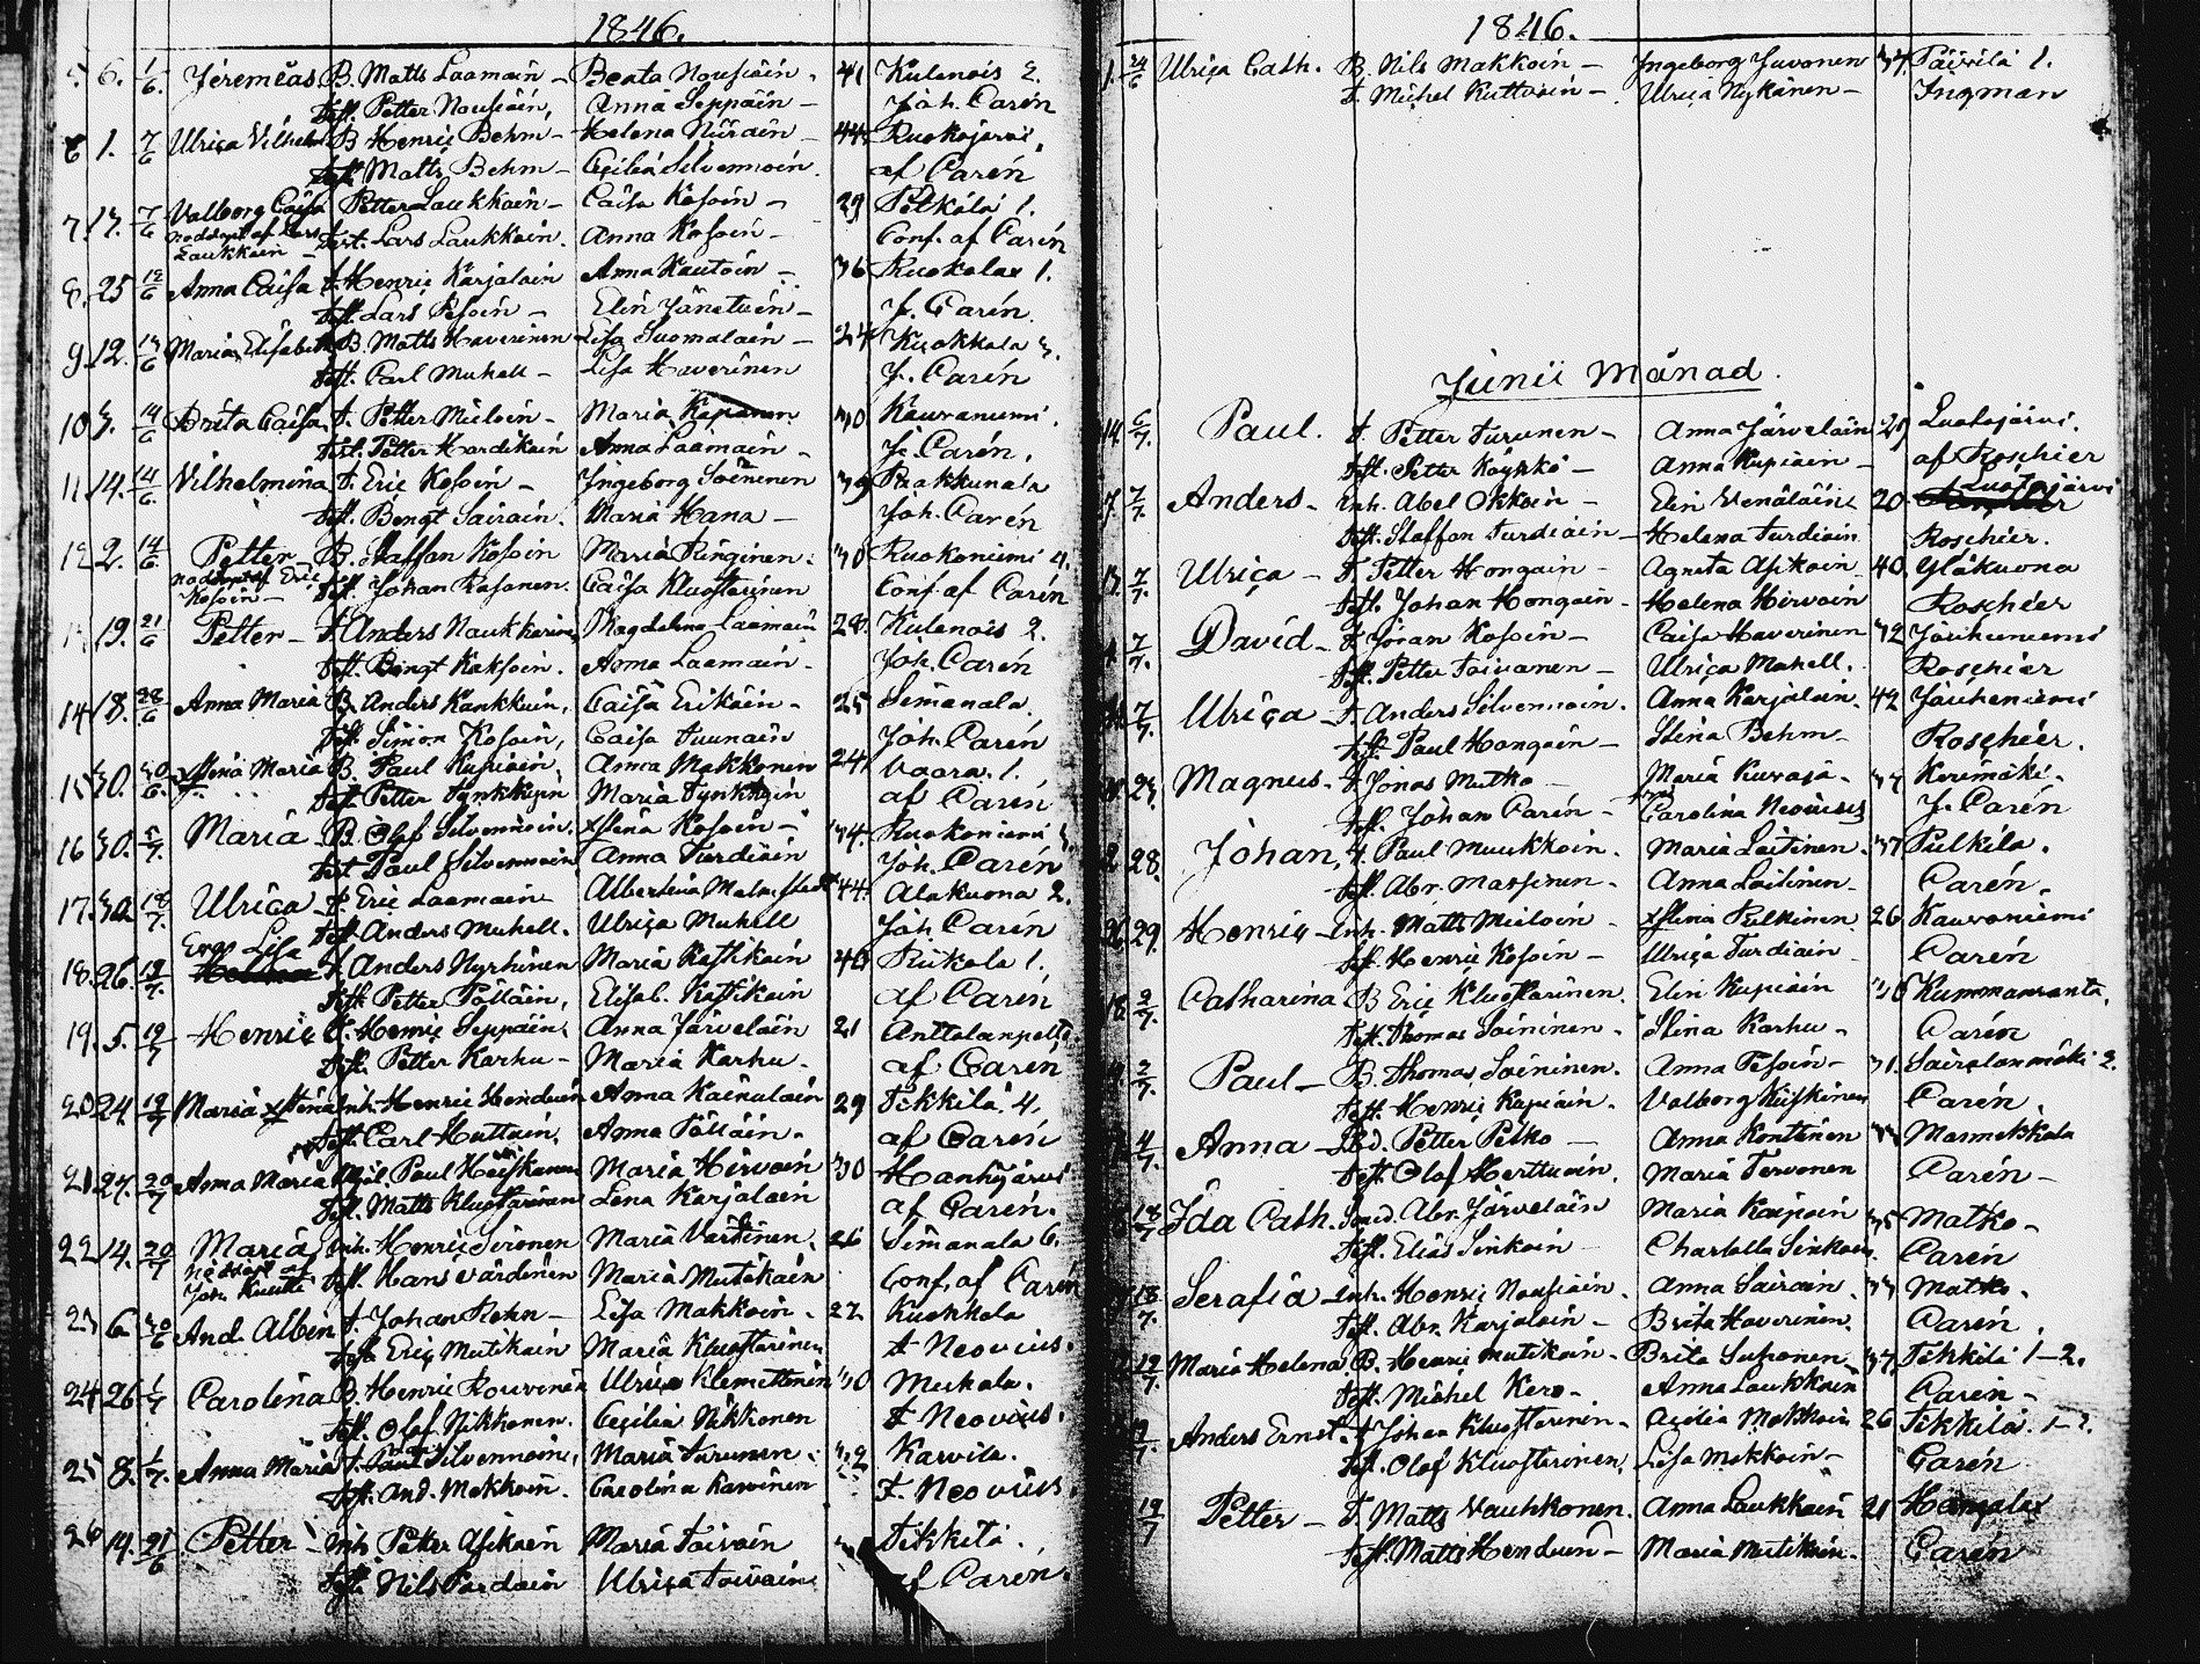 1846.
5. 6. 1/6. Jeremias B. Matts Laamain – Beata Nousiain. 41 Kulenois 2.
Test. Petter Nousiain, Anna Seppäin – Joh. Carén
6 1. 7/6 Ulrica Vilhelm B Henric Behm – Helena 44 Ruokojärvi.
Test. Matts Behm – Cecilia Silvennoin. af Carén
7. 17. 7/6 Valborg Caisa Petter Laukkain – Caisa Kosoin – 29 Pelkälä 1.
Nöddöpt af Lars Laukkain – Test. Lars Laukkain. Anna Kosoin – Conf. af Carén
8. 25 12/6 Anna Caisa T. Henric Karjalain Anna Kautoin – 36 Ruokolax 1.
Test. Lars Pesoin – Elin Jänetuin – J. Carén.
9. 12. 13/6 Maria Elisabeth B. Matts Haverinen Lisa Suomalain – 24 Kuokkala 3.
Test. Carl Muhell – Lisa Haverinen J. Carén
10 3. 14/6 Brita Caisa T. Petter Mieloin – Maria 30 Kauraniemi.
Test. Petter Hardikain Anna Laamain – J. Carén.
11. 14. 14/6. Vilhelmina T. Eric Kosoin – Ingeborg Soininen 39 Pakkunala
Test. Bengt Sairain. Maria Hana – Joh. Carén
12 2. 14/6. Petter B. Staffan Kosoin Maria Ringinen. 30 Ruokoniemi 4.
nöddöpt af Eric Kosoin – Test. Johan Kosonen. Caisa Kluostarinen Conf. af Carén
19. 21/6 Petter – T. Anders Naukkarinen Magdalena Laamain 28. Kulenois 2.
Test. Bengt Kaksoin. Anna Laamain – Joh. Carén
14 18. 28/6 Anna Maria B. Anders Kankkuin. Caisa Erikäin – 25 Simanala.
Test. Simon Kosoin, Caisa Tuunain Joh. Carén
15 30. 30/6. Xstina Maria B. Paul Kupiain. Anna Makkonen 24. Vaara. 1.
Test. Petter Tynkkyin Maria Tynkkyin af Carén
16 30. 5/7. Maria B. Olof Silvennoin. Xstina Kosoin – 34. Ruokoniemi
Test Paul Silvennoin. Anna Turdiain Joh. Carén
17. 30. 18/7. Ulrica T. Eric Laamain Albertina Malmstedt 44. Alakuona 2.
Test. Anders Muhell. Ulrica Muhell Joh. Carén
18. 26. 19/7. Eva Lisa T. Anders Nyrhinen Maria Kostikain 40 Riikola 1.
Test. Petter Pölläin, Elisab. Kostikain af Carén
19. 5. 19/7 Henric T. Henric Seppäin. Anna Järveläin 21 Anttolanpelto.
Test. Petter Karhu – Maria Karhu. af Carén
20 24 19/7 Maria Xstina Inh. Henric Henduin Anna Kainulain 29 Tikkilä. 4.
Test. Carl Huttuin. Anna Pölläin. af Carén
21 27. 20/7 Anna Maria Paul Heiskanen Maria Hirvoin 30 Hankijärvi
Test. Matts Kluostarinen Lena Karjalain af Carén.
22 14. 20/7 Maria Inh. Henric Sironen Maria Värtinen. 26 Simanala 6.
Nöddöpt af Joh. Test. Hans Värdinen Maria Mutikain Conf. af Carén
23 6 30/6 And. Alben T. Johan Rehn – Lisa Makkoin – 22 Kuokkala
Test. Eric Mutikain Maria Kluostarinen F. Neovius.
24 26 1/7 Carolina B. Henric Rouvinen Ulrica Klemettinen 30 Mickola.
Test. Olof Nikkonen. Cecilia Nikkonen F Neovius.
25 8. 1/7. Anna Maria T. Paul Silvennoin, Maria Turunen. 32 Karvila.
Test. And. Makkoin. Carolina Karvinen F. Neovius.
26 14. 21/6 Petter – Inh Petter Asikain Maria Toivoin Tikkilä.
Test. Nils Pardain Ulrica Toivain af Carén.
1846.
1. 24/6 Ulrica Cath. B. Nils Makkoin – Ingeborg Juvonen 37. Päivilä 1.
T. Michel Kuttvain – Ulrica Nykänen – Ingman
Junii Månad.
14. 6/7. Paul. T. Petter Turunen – Anna Järveläin 29 Luotojärvi.
Test. Petter Käyhkö – Anna Kupiain – af Roschier
7. 7/7. Anders – Inh. Abel Okkoin – Elin Venäläin 20. Luotojärvi
Test. Staffan Turdiain – Helena Turdiain Roschier.
13. 7/7. Ulrica – T. Petter Hongain – Agneta Asikain 40. Yläkuona
Test. Johan Hongain – Helena Hirvoin Roschier
7/7. David – T. Jöran Kosoin – Caisa Haverinen 32 Jouhenniemi
Test. Petter Toivanen – Ulrica Muhell. Roschier
7/7. Ulrica – T. Anders Silvennoin. Anna Karjalain. 42 Jouhenniemi
Test. Paul Hongain – Stina Behm – Roschier.
23. Magnus. T. Jonas Mutko – Maria Kuvaja. 37 Kerimäki.
Test. Johan Carén – Carolina Neovius J. Carén
2 28. Johan, T. Paul Muukkoin. Maria Laitinen. 37 Pulkila.
Test. Abr. Massinen. Anna Laitinen – Carén.
29. Henric – Inh. Matts Mieloin – Xstina Pulkinen 26 Kauraniemi
Test. Henric Kosoin – Ulrica Turdiain Carén
18. 2/7. Catharina B Eric Kluostarinen. Elin Kupiain 36 Kummanranta.
Test. Thomas Soininen. Stina Karhu – Carén
2/7. Paul – B. Thomas Soininen. Anna Pesoin – 31. Sairalanmäki 2.
Test. Henric Kupiain. Valborg Hiiskinen Carén.
4/7. Anna – Petter Pelko – Anna Konttinen 33 Mannikkala
Test. Olof Herttuain. Maria Tervonen Carén –
18/7 Ida Cath. Smed. Abr. Järveläin Maria Kaipain 35 Matko –
Test. Elias Sinkoin Charlotta Sinkoin. Carén
18/7. Serafia – Inh. Henric Nousiain. Anna Sairain. 33 Matko.
Test. Abr. Karjalain – Brita Haverinen. Carén.
19/7. Maria Helena B. Henric Mutikain – Brita Suhonen 37. Tikkilä 1–2.
Test. Michel Kero – Anna Laukkain Carén –
19/7. Anders Ernst. T Johan Kluostarinen – Cecilia Makkoin 26 Tikkilä. 1–2.
Test. Olof Kluostarinen. Lisa Makkoin – Carén
19/7 Petter – T. Matts Vauhkonen. Anna Laukkain 21 Hangalax
Test. Matts Henduin – Maria Mutikain. Carén